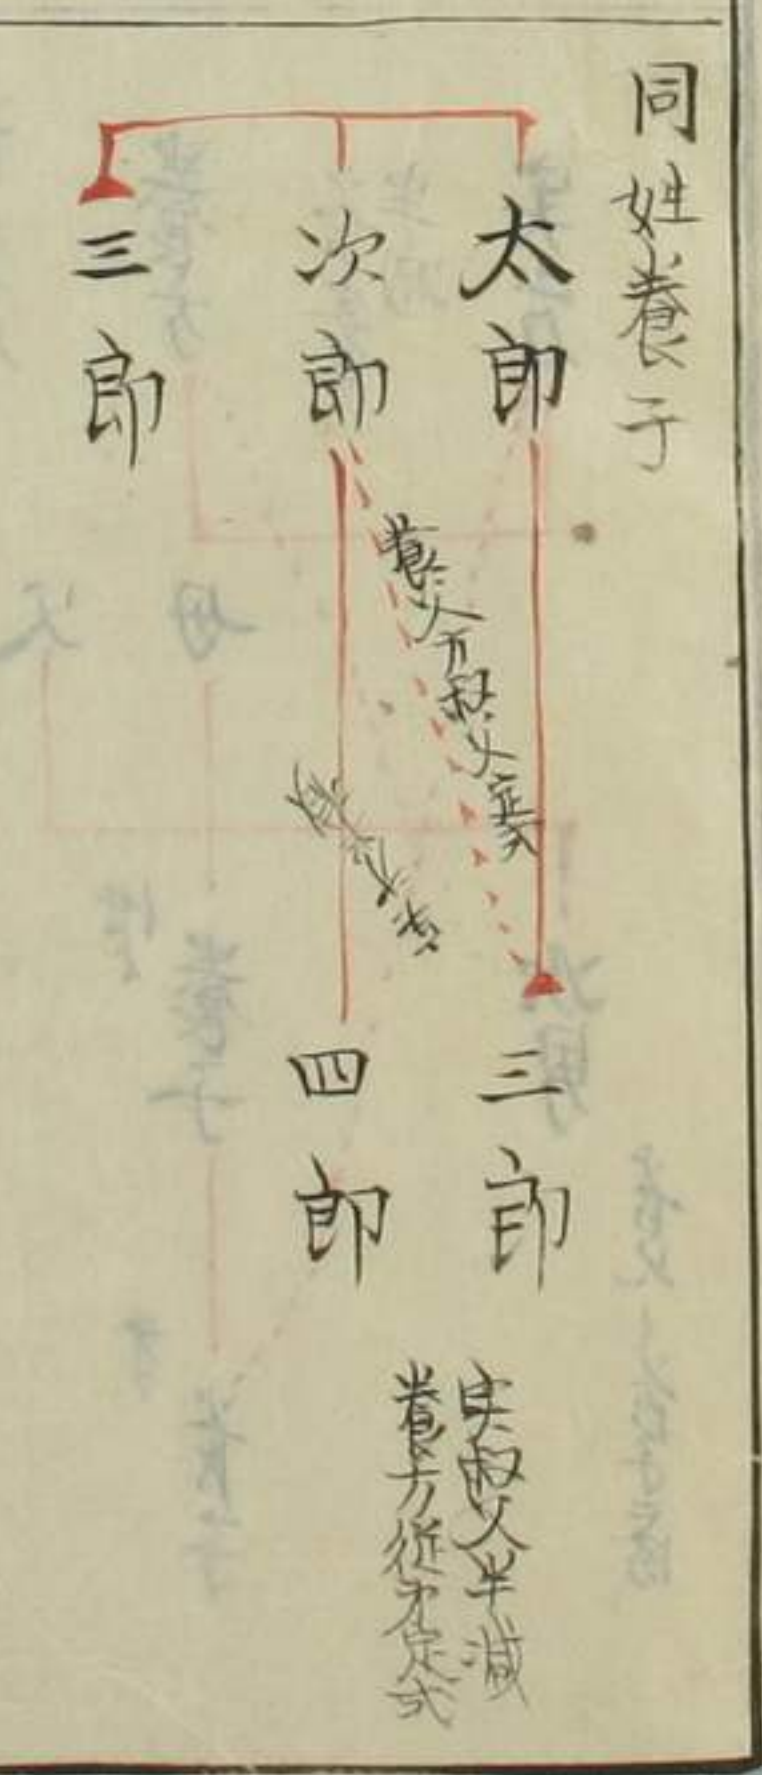 同姓養子
太郎
次郎
三郎
養父方叔父定式
三郎
四郎
実叔父半減
養方従弟定式